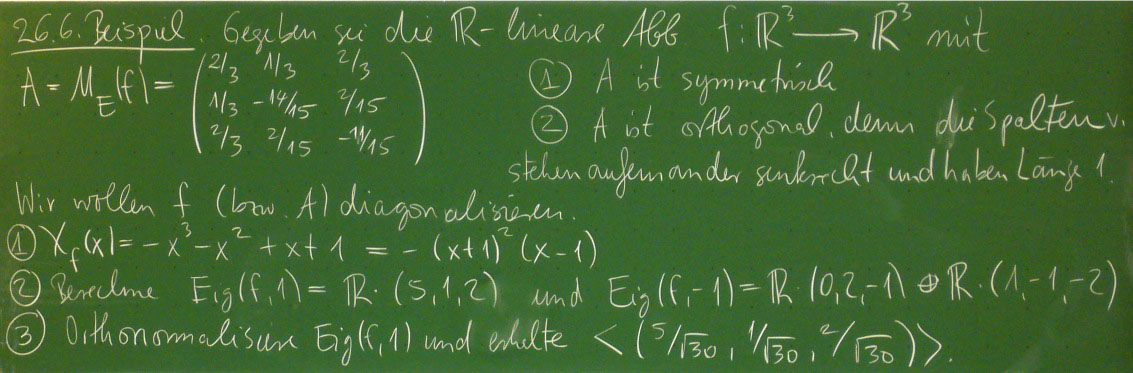 26.6. Beispiel. Gegeben sei die ℝ-lineare Abb f: ℝ³ → ℝ³ mit
A = M_E(f) = ( 2/3 1/3 2/3
1/3 -14/15 2/15
2/3 2/15 -11/15 )
① A ist symmetrisch
② A ist orthogonal, denn die Spalten v.
stehen aufeinander senkrecht und haben Länge 1.
Wir wollen f (bzw. A) diagonalisieren.
① χ_f(x) = -x³ - x² + x + 1 = -(x+1)²(x-1)
② Berechne Eig(f,1) = ℝ·(5,1,2) und Eig(f,-1) = ℝ·(0,2,-1) ⊕ ℝ·(1,-1,-2)
③ Orthonormalisiere Eig(f,1) und erhalte <(5/√30, 1/√30, 2/√30)>.